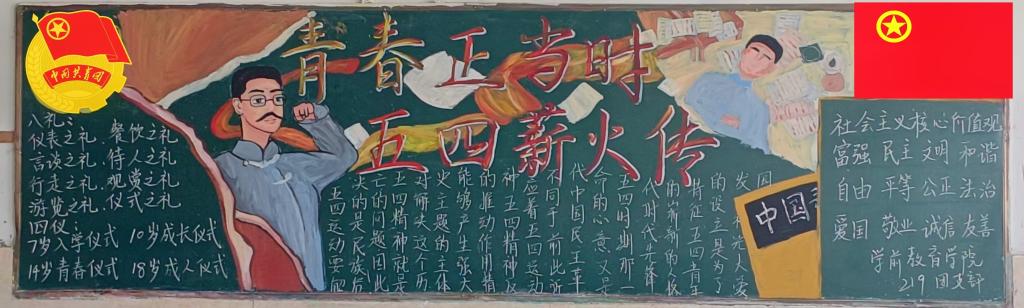 青春正当时
五四薪火传
八礼：
仪表之礼、餐饮之礼
言谈之礼、待人之礼
行走之礼、观赏之礼
游览之礼、仪式之礼
四仪
7岁入学仪式 10岁成长仪式
14岁青春仪式 18岁成人仪式
五四运动要
决的是民族后
亡的问题因此
五四精神就是
对解决这个历
史主题的主体
能够产生强大
的推动作用精
神五四精神仅
应着五四运动
不同于前此所
代中国民主革
命的心意义是
五四时期那一
代时代先锋
的崭新的人格
特征五四
的设主是为了
发 光大爱
因
中国
社会主义核心价值观
富强 民主 文明 和谐
自由 平等 公正 法治
爱国 敬业 诚信 友善
学前教育学院
219 团支部
中国共青团